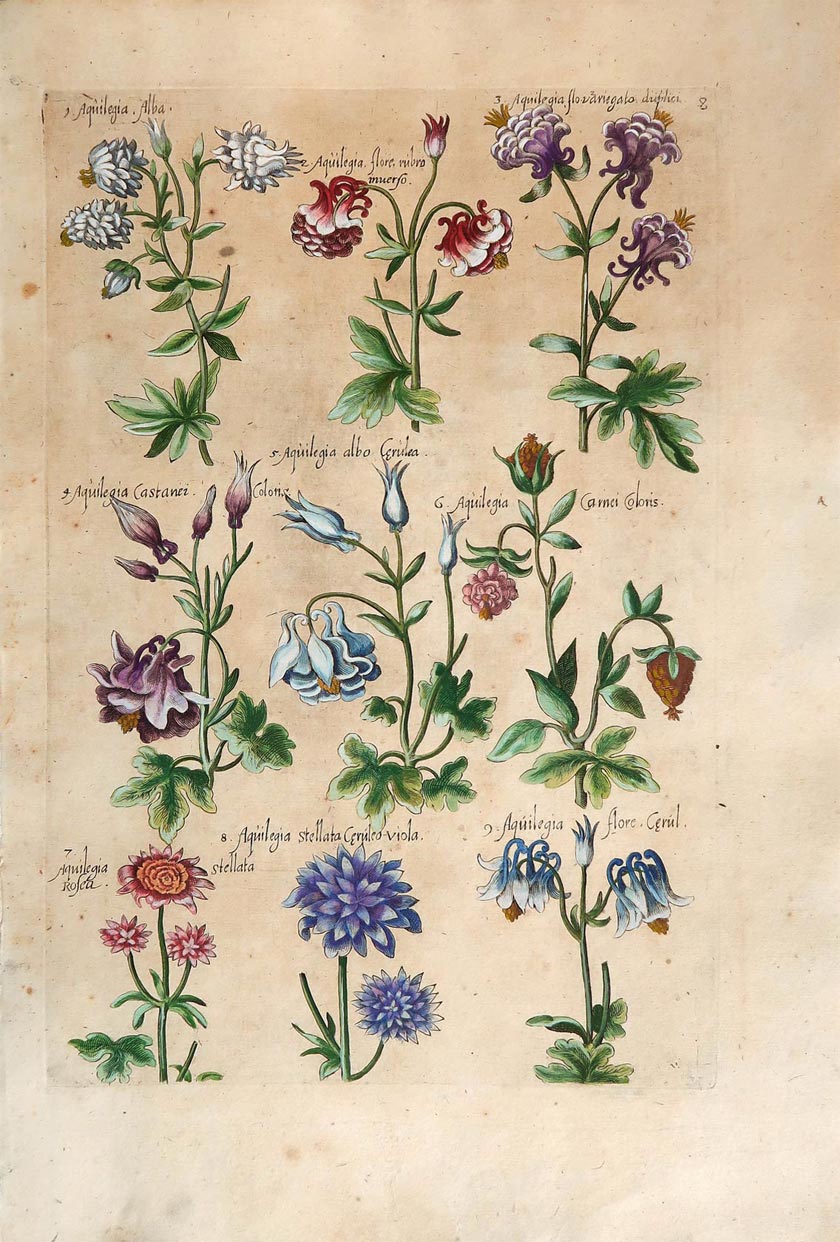 1. Aquilegia. Alba.
2. Aquilegia. flore. rubro
inverso.
3. Aquilegia flo variegato duplici.
8
4. Aquilegia Castanei. Coloris.
5. Aquilegia albo Cęrulea.
6. Aquilegia Carnei Coloris.
7
Aquilegia stellata
Rosea.
8. Aquilegia Stellata Cęruleo-viola.
9. Aquilegia flore. Cęrul.